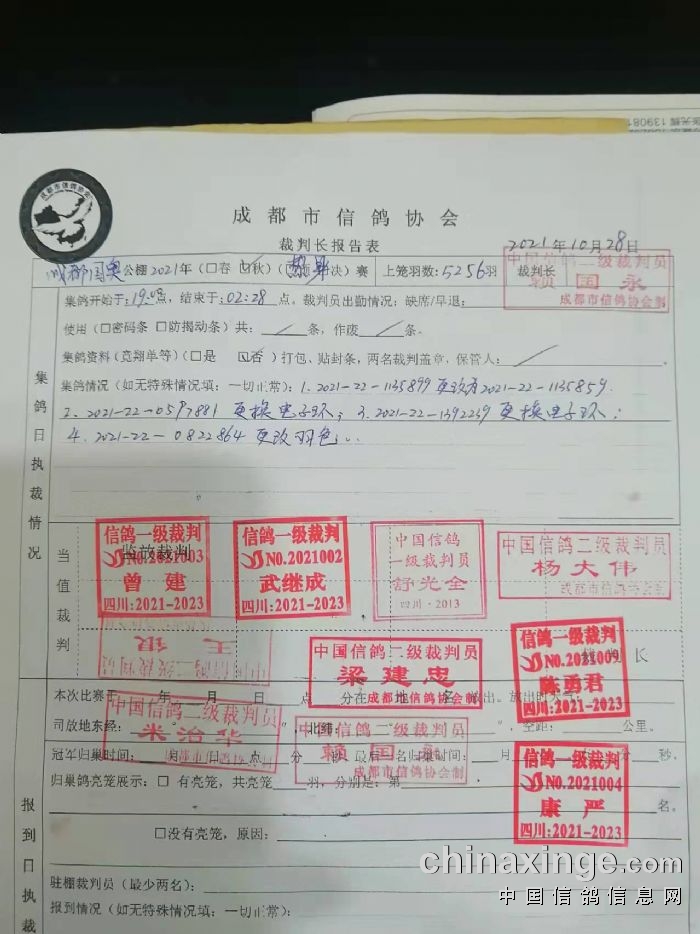 成都市信鸽协会
成都市信鸽协会
裁判长报告表
2021年10月28日
成都国奥公棚2021年(□春 ☑秋)(决)赛 上笼羽数:5256羽 裁判长
中国信鸽二级裁判员
赖国永
成都市信鸽协会制
集鸽开始于:19:08点,结束于:02:28点。裁判员出勤情况:缺席/早退:
使用(□密码条 □防揭动条)共:条,作废条。
集鸽资料(竞翔单等)(□是 ☑否)打包、贴封条,两名裁判盖章,保管人:
集鸽情况(如无特殊情况填:一切正常):1.2021-22-1135899更改为2021-22-1135859.
2.2021-22-0597881更换电子环;3.2021-22-1392239更换电子环;
4.2021-22-0822864更改羽色
集鸽日执裁情况
当值裁判
监放裁判
信鸽一级裁判
NO.2021003
曾建
四川:2021-2023
信鸽一级裁判
NO.2021002
武继成
四川:2021-2023
中国信鸽
一级裁判员
舒光全
四川·2013
中国信鸽二级裁判员
杨大伟
成都市信鸽协会制
中国信鸽二级裁判员
王银
中国信鸽二级裁判员
梁建忠
成都市信鸽协会制
信鸽一级裁判
NO.2021009
陈勇君
四川:2021-2023
长
本次比赛于年月日点分在地名放出。放出时天气:
中国信鸽二级裁判员
米治华
成都市信鸽协会制
中国信鸽二级裁判员
赖国永
成都市信鸽协会制
司放地东经:北纬:空距:公里。
冠军归巢时间:月日点分秒 最后名归巢时间:月分秒。
归巢鸽亮笼展示:□有亮笼,共亮笼羽,分别是:第名。
信鸽一级裁判
NO.2021004
康严
四川:2021-2023
□没有亮笼,原因:
报到日执裁
驻棚裁判员(最少两名):
报到情况(如无特殊情况填:一切正常):
chinaxinge.com
中国信鸽信息网